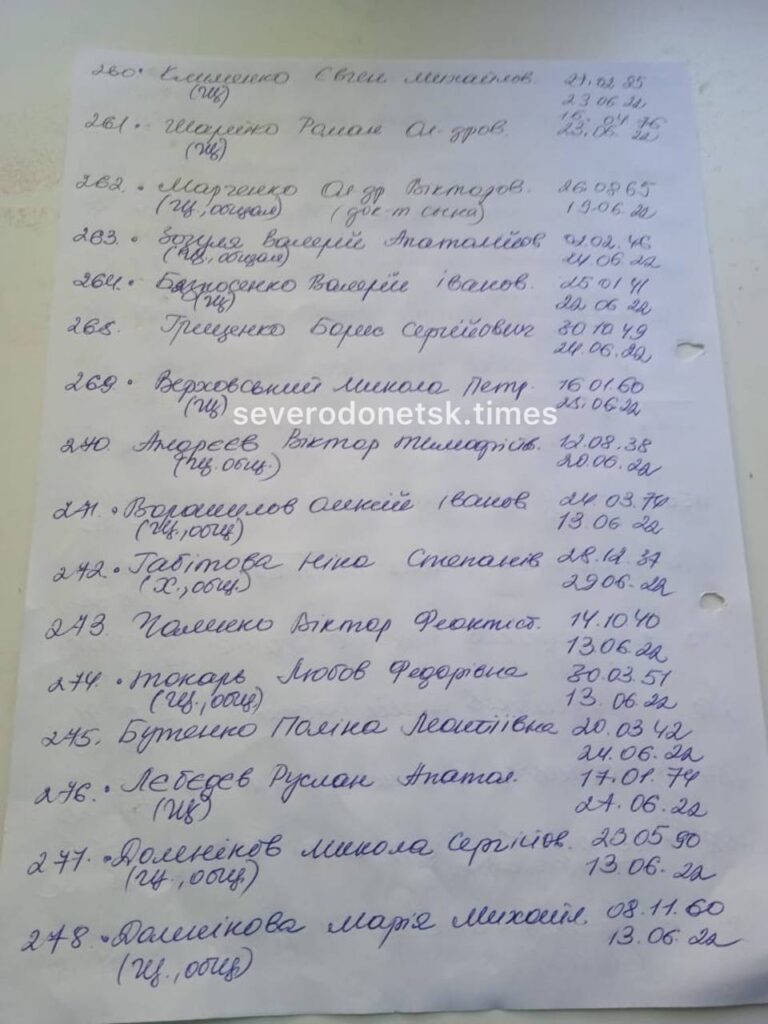 260. Клименко Євген Михайлов. 27.02 85
(Гщ) 23 06 22
261. Роман Ол-дров. 16. 04 76
(Гщ) 23. 06. 22
262. Марченко Ол-др Вікторов. 26.08 65
(Гщ., общая) (дос-т сына) 19.06.22
263. Зозуля Валерій Анатолійов 02.02. 46
(Гщ., общая) 24 06 22
264. Валерій Іванов. 25 01 41
(Гщ) 22 06 22
268. Грищенко Борис Сергійович 30 10 49
24.06.22
269. Верховський Микола Петр. 16 01.60
(Гщ) 06.22
severodonetsk.times
270. Андрєєв Віктор Тимофійв. 12.08.38
(Гщ. общ.) 20.06.22
271. Ворошилов Олексій Іванов 24.03.74
(Гщ., общ) 13 06 22
272. Габітова Ніна Степанів 28.12.37
(Х., общ.) 29 06.22
273. Віктор Феоктист. 14.10 40
13.06.22
274. Токарь Любов Федорівна 30.03.51
(Гщ., общ) 13. 06 22
275. Бутенко Поліна Леонтіївна 20.03 42
24.06.22
276. Лєбєдєв Руслан Анатол. 17.01.74
(Гщ) 27. 06. 22
277. Микола Сергійов. 23 05 90
(Гщ., общ.) 13.06. 22
278. Марія Михайл. 08.11.60
(Гщ., общ) 13.06.22